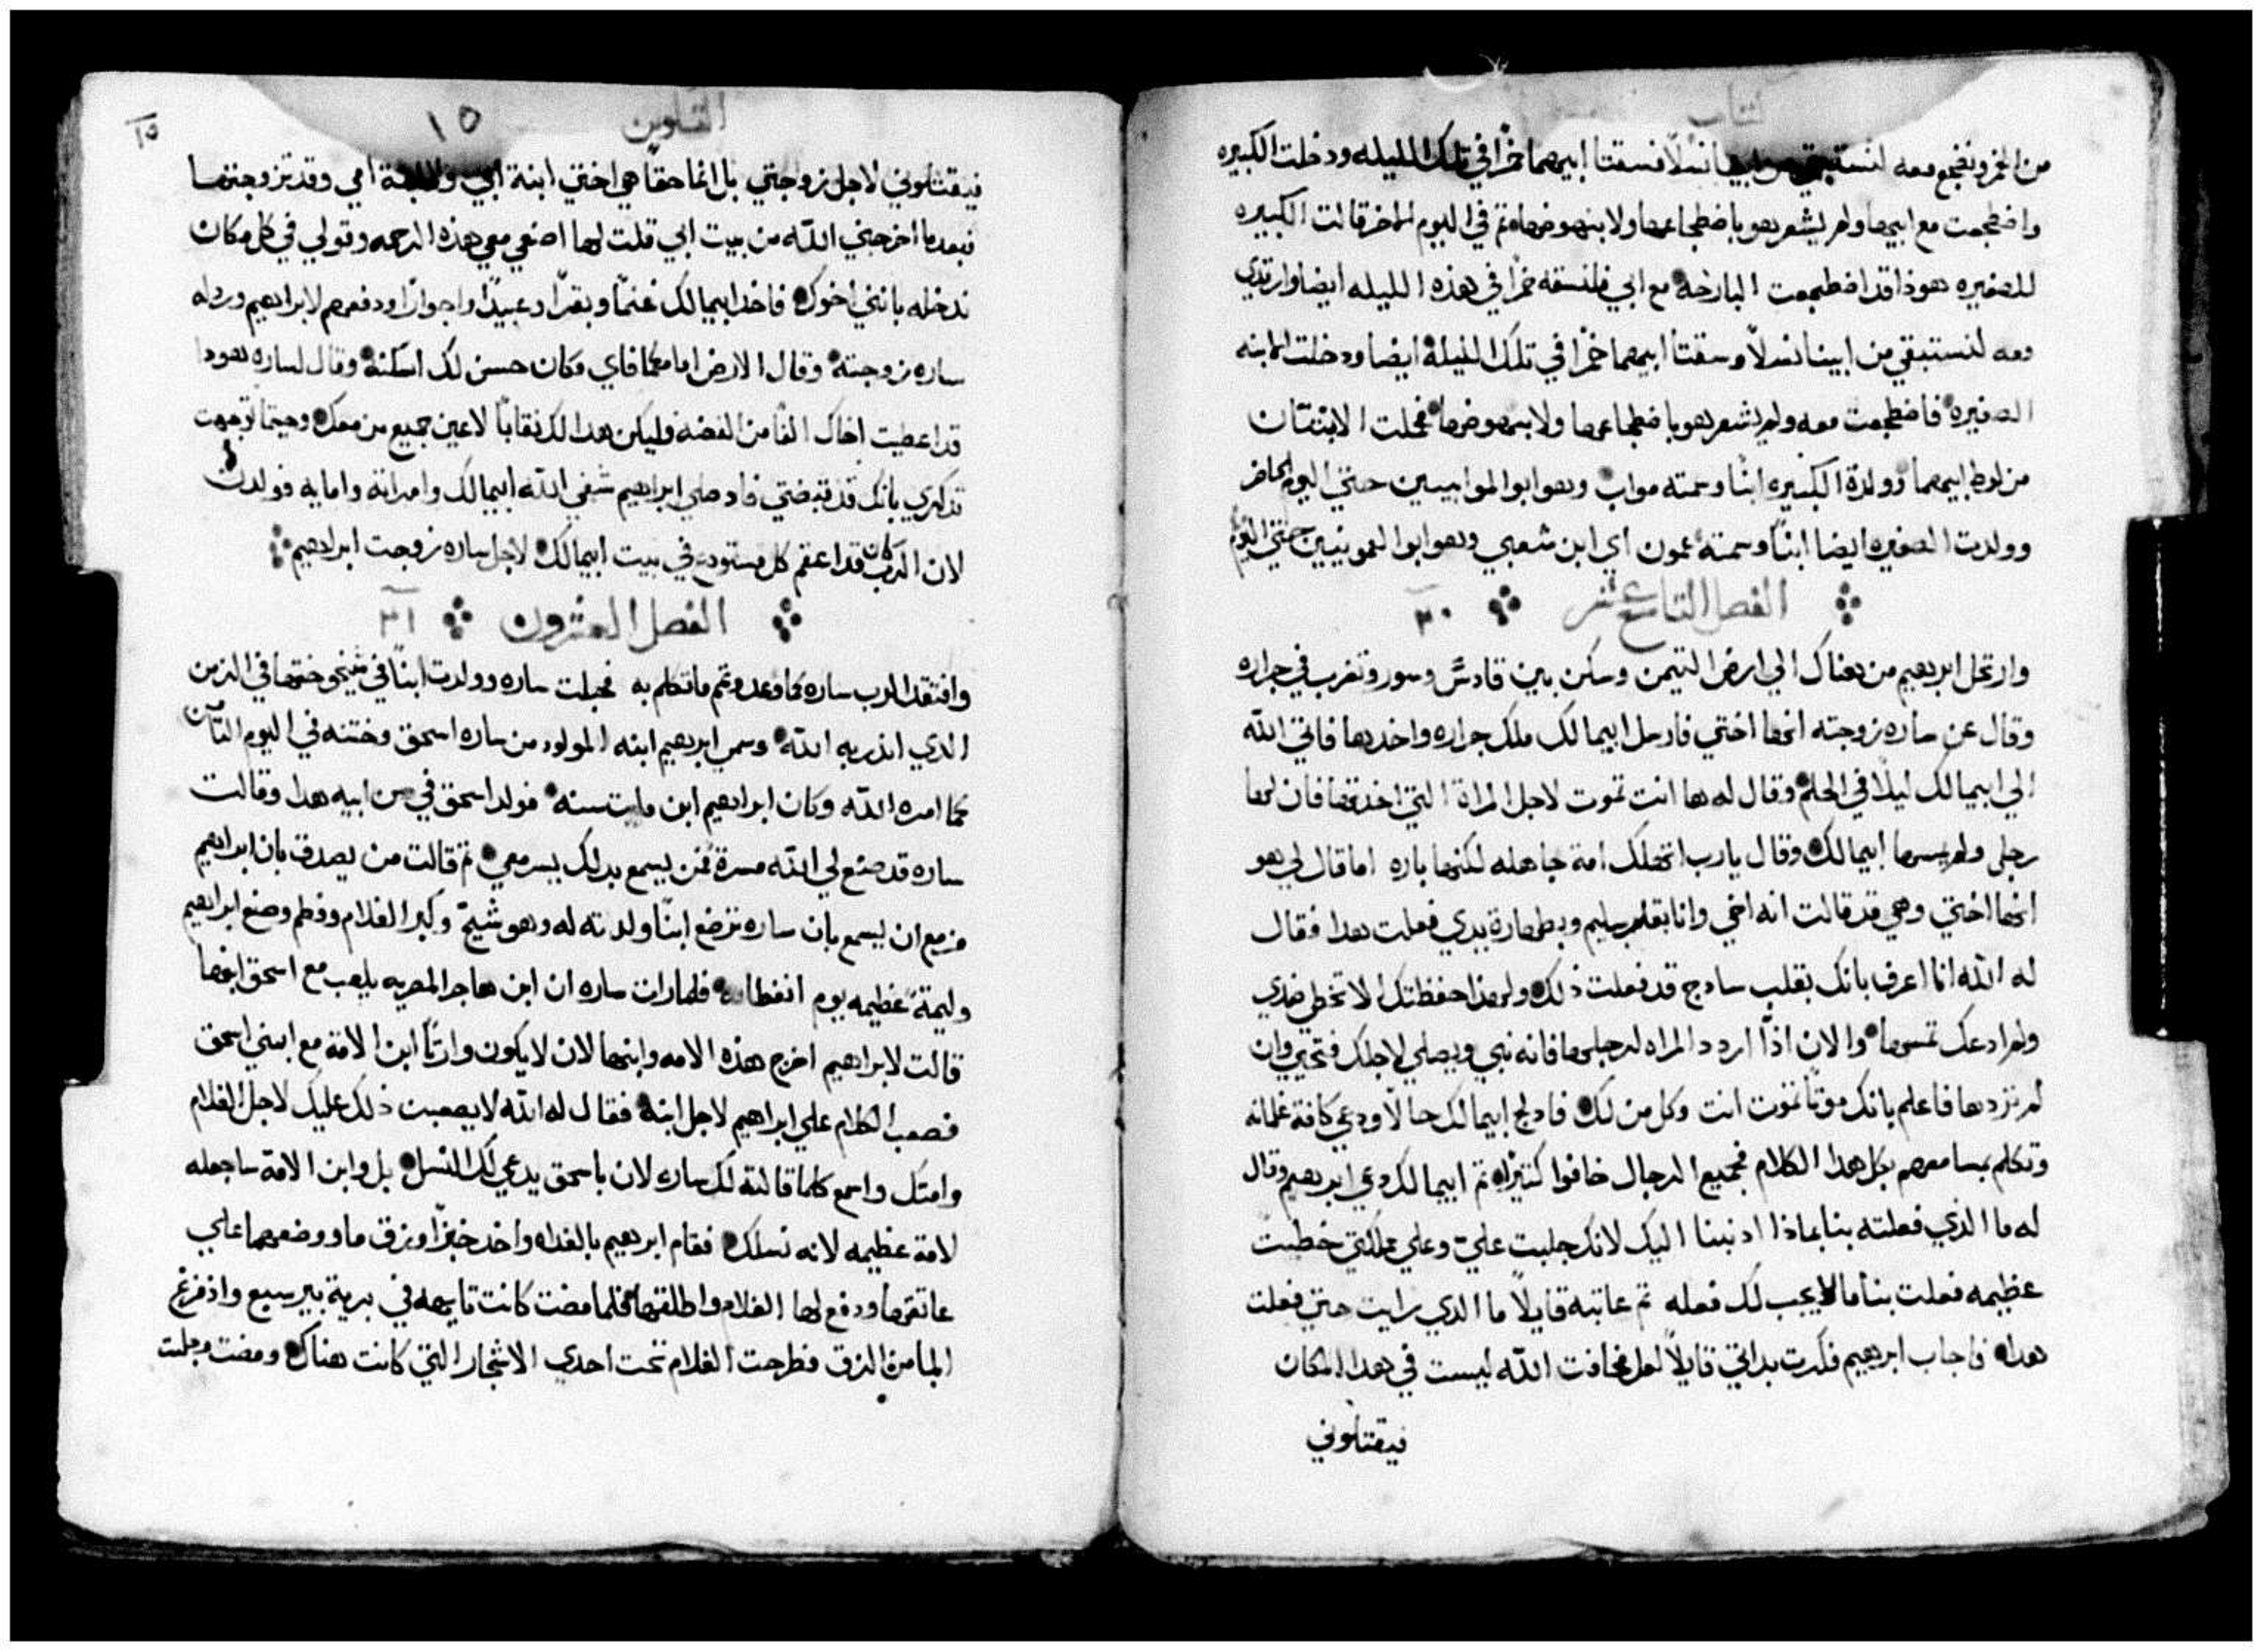 كتاب
من الخمر ونضجع معه لنستبقي من ابينا نسلاً فسقتا ابيهما خمرًا في تلك الليله ودخلت الكبيره
واضطجعت مع ابيها ولم يشعر هو باضطجاعها ولا بنهوضها ثم في اليوم الاخر قالت الكبيره
للصغيره هوذا قد اضطجعت البارحة مع ابي فلنسقه خمرًا في هذه الليله ايضا وارقدي
معه لنستبقي من ابينا نسلاً وسقتا ابيهما خمرًا في تلك الليلة ايضا ودخلت الابنه
الصغيره فاضطجعت معه ولم يشعر هو باضطجاعها ولا بنهوضها فحملت الابنتان
من لوط ابيهما وولدة الكبيره ابنًا وسمته مواب وهو ابو الموابيين حتي اليوم الحاضر
وولدت الصغيره ايضا ابنًا وسمته عمون اي ابن شعبي وهو ابو العمونيين حتي اليوم
الفصل التاسع عشر ٢٠
وارتحل ابرهيم من هناك الي ارض التيمن وسكن بين قادس وسور وتغرب في جراره
وقال عن ساره زوجته انها اختي فارسل ابيمالك ملك جراره واخدها فاتي الله
الي ابيمالك ليلاً في الحلم وقال له ها انت تموت لاجل المراة التي اخدتها فان لها
رجلي ولم يمسها ابيمالك وقال يارب اتهلك امة جاهله لكنها باره اما قال لي هو
انها اختي وهي قد قالت انه اخي وانا بقلب سليم وبطهارة يدي فعلت هدا فقال
له الله انا اعرف بانك بقلب سادج قد فعلت ذلك ولهذا حفظتك الا تخطي ضدي
ولم ادعك تمسها والان اذًا اردد المراه لرجلها فانه نبي ويصلي لاجلك فتحيي وان
لم تردها فاعلم بانك موتًا تموت انت وكل من لك فادلج ابيمالك حالاً ودعي كافة غلمانه
وتكلم بمسامعهم بكل هدا الكلام فجميع الرجال خافوا كثيرًا ثم ابيمالك دعي ابرهيم وقال
له ما الذي فعلته بنا بماذا ادنبنا اليك لانك جلبت عليّ وعلي مملكتي خطيت
عظيمه فعلت بنا ما لا يجب لك فعله ثم عاتبه قايلاً ما الدي رايت حتي فعلت
هدا فاجاب ابرهيم فكرت بداتي قايلاً لعل مخافت الله ليست في هدا المكان
فيقتلوني
التكوين ١٥
١٥
فيقتلوني لاجل زوجتي بل انها حقًا هي اختي ابنة ابي ولا ابنة امي وقد تزوجتها
فبعد ما اخرجني الله من بيت ابي قلت لها اصنعي معي هذه الرحمه وقولي في كل مكان
ندخله بانني اخوك فاخد ابيمالك غنمًا وبقرًا وعبيدًا واجوارًا ودفعهم لابراهيم ورد له
ساره زوجته وقال الارض امامكما فاي مكان حسن لك اسكنه وقال لساره هودا
قد اعطيت اخاك الفًا من الفضه فليكن هدا لك نقابًا لاعين جميع من معك وحيتما توجهت
تدكري بانك قد قبضتي فاد صلي ابراهيم شفي الله ابيمالك وامراته وامايه فولدن
لان الرب كان قد اعقم كل مستودع في بيت ابيمالك لاجل ساره زوجت ابراهيم
الفصل العشرون ٢١
وافتقد الرب ساره كما وعد وتمم ما تكلم به فحبلت ساره وولدت ابنًا في شيخوختها في الزمن
الدي اندر به الله وسمي ابرهيم ابنه المولود من ساره اسحق وختنه في اليوم التامن
كما امره الله وكان ابراهيم ابن مايت سنه فولد اسحق في سن ابيه هدا وقالت
ساره قد صنع لي الله مسرة فمن يسمع بدلك يسر معي ثم قالت من يصدق بان ابراهيم
مزمع ان يسمع بان ساره ترضع ابنًا ولدته له وهو شيخ وكبر الغلام وفطم وصنع ابراهيم
وليمة عظيمه يوم انفطامه فلما رات ساره ان ابن هاجر المصريه يلعب مع اسحق ابنها
قالت لابراهيم اخرج هذه الامه وابنها لان لا يكون وارثًا ابن الامة مع ابني اسحق
فصعب الكلام علي ابراهيم لاجل ابنه فقال له الله لا يصعبت ذلك عليك لاجل الغلام
وامتك واسمع كلما قالته لك ساره لان باسحق يدعي لك النسل بل وابن الامة ساجعله
لامة عظيمه لانه نسلك فقام ابرهيم بالغداه واخد خبزًا وزق ما ووضعهما علي
عاتقها ودفع لها الغلام واطلقها فلما مضت كانت تايهه في برية بير سبع واذ فرغ
الما من الزق فطرحت الغلام تحت احدي الاشجار التي كانت هناك ومضت وجلست